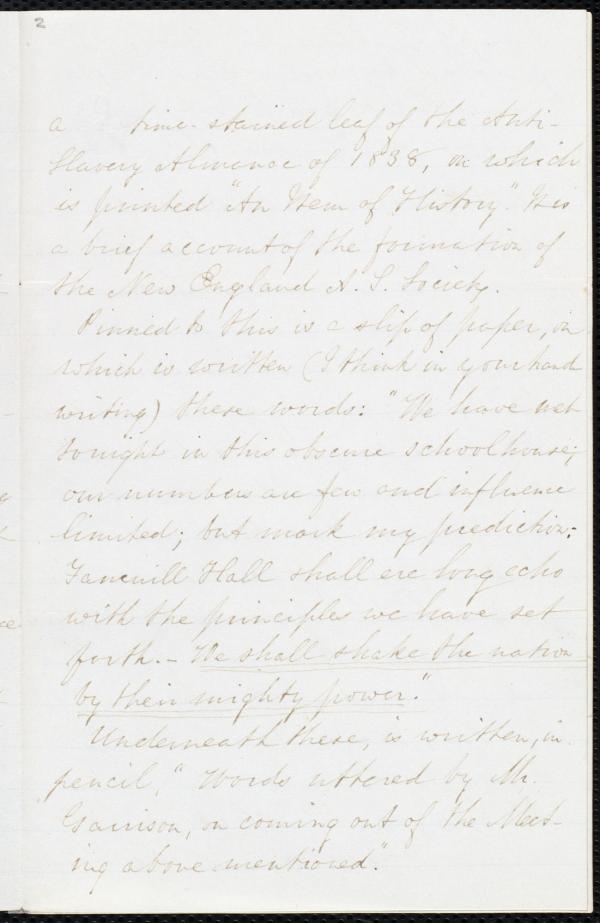 2
a time-stained leaf of the Anti-
Slavery Almanac of 1838, on which
is printed "An Item of History." It is
a brief account of the formation of
the New England A. S. Society.
Pinned to this is a slip of paper, on
which is written (I think in your hand
writing) these words: "We have met
tonight in this obscure schoolhouse;
our numbers are few and influence
limited; but mark my prediction:
Faneuill Hall shall ere long echo
with the principles we have set
forth. - We shall shake the nation
by their mighty power."
Underneath these, is written, in
pencil, "Words uttered by Mr.
Garrison, on coming out of the Meet-
ing above mentioned."